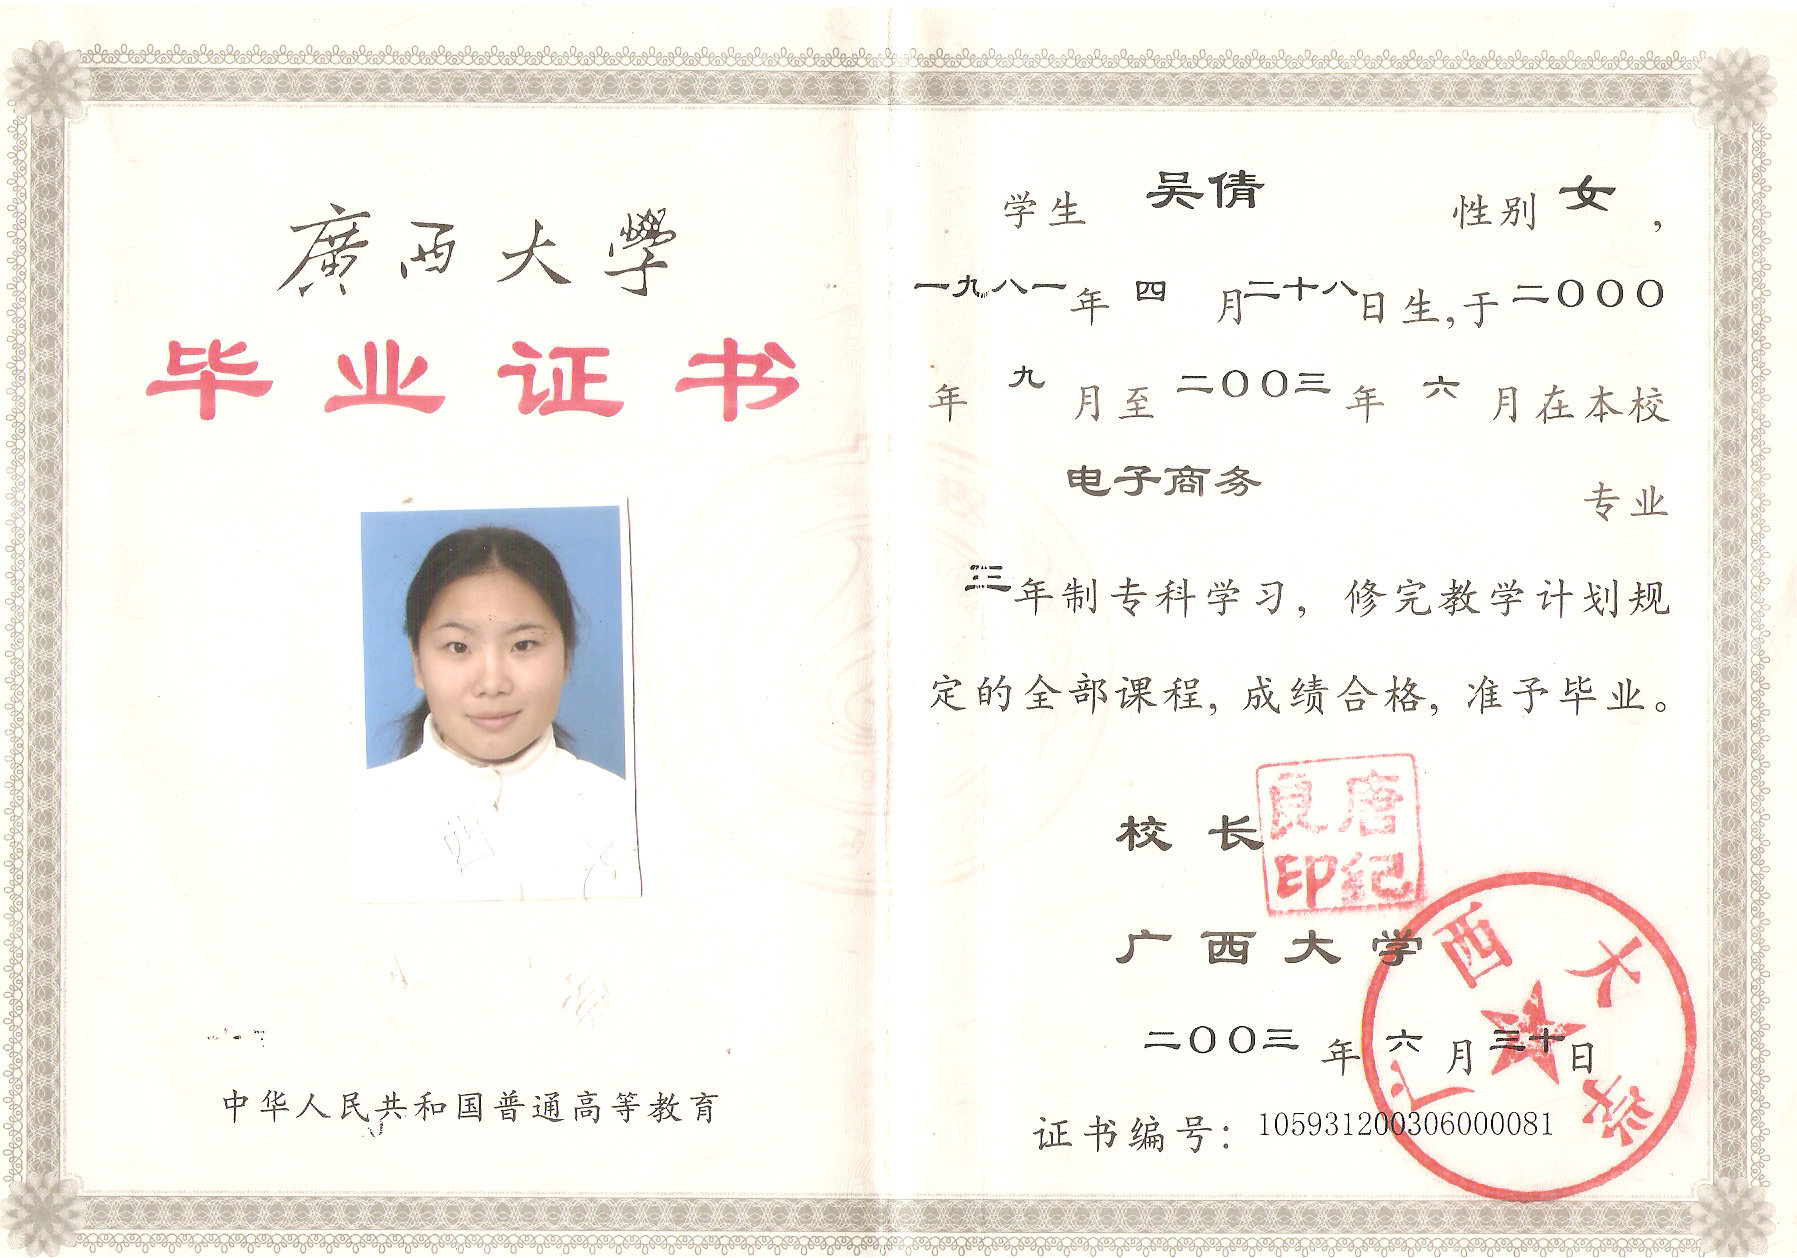 廣西大學
毕业证书
中华人民共和国普通高等教育
学生 吴倩 性别 女，
一九八一年 四 月二十八日生，于二〇〇〇
年 九 月至 二〇〇三 年 六 月在本校
电子商务 专业
三年制专科学习，修完教学计划规
定的全部课程，成绩合格，准予毕业。
校 长
唐纪良印
广西大学
广西大学
二〇〇三 年 六 月 三十日
证书编号：105931200306000081